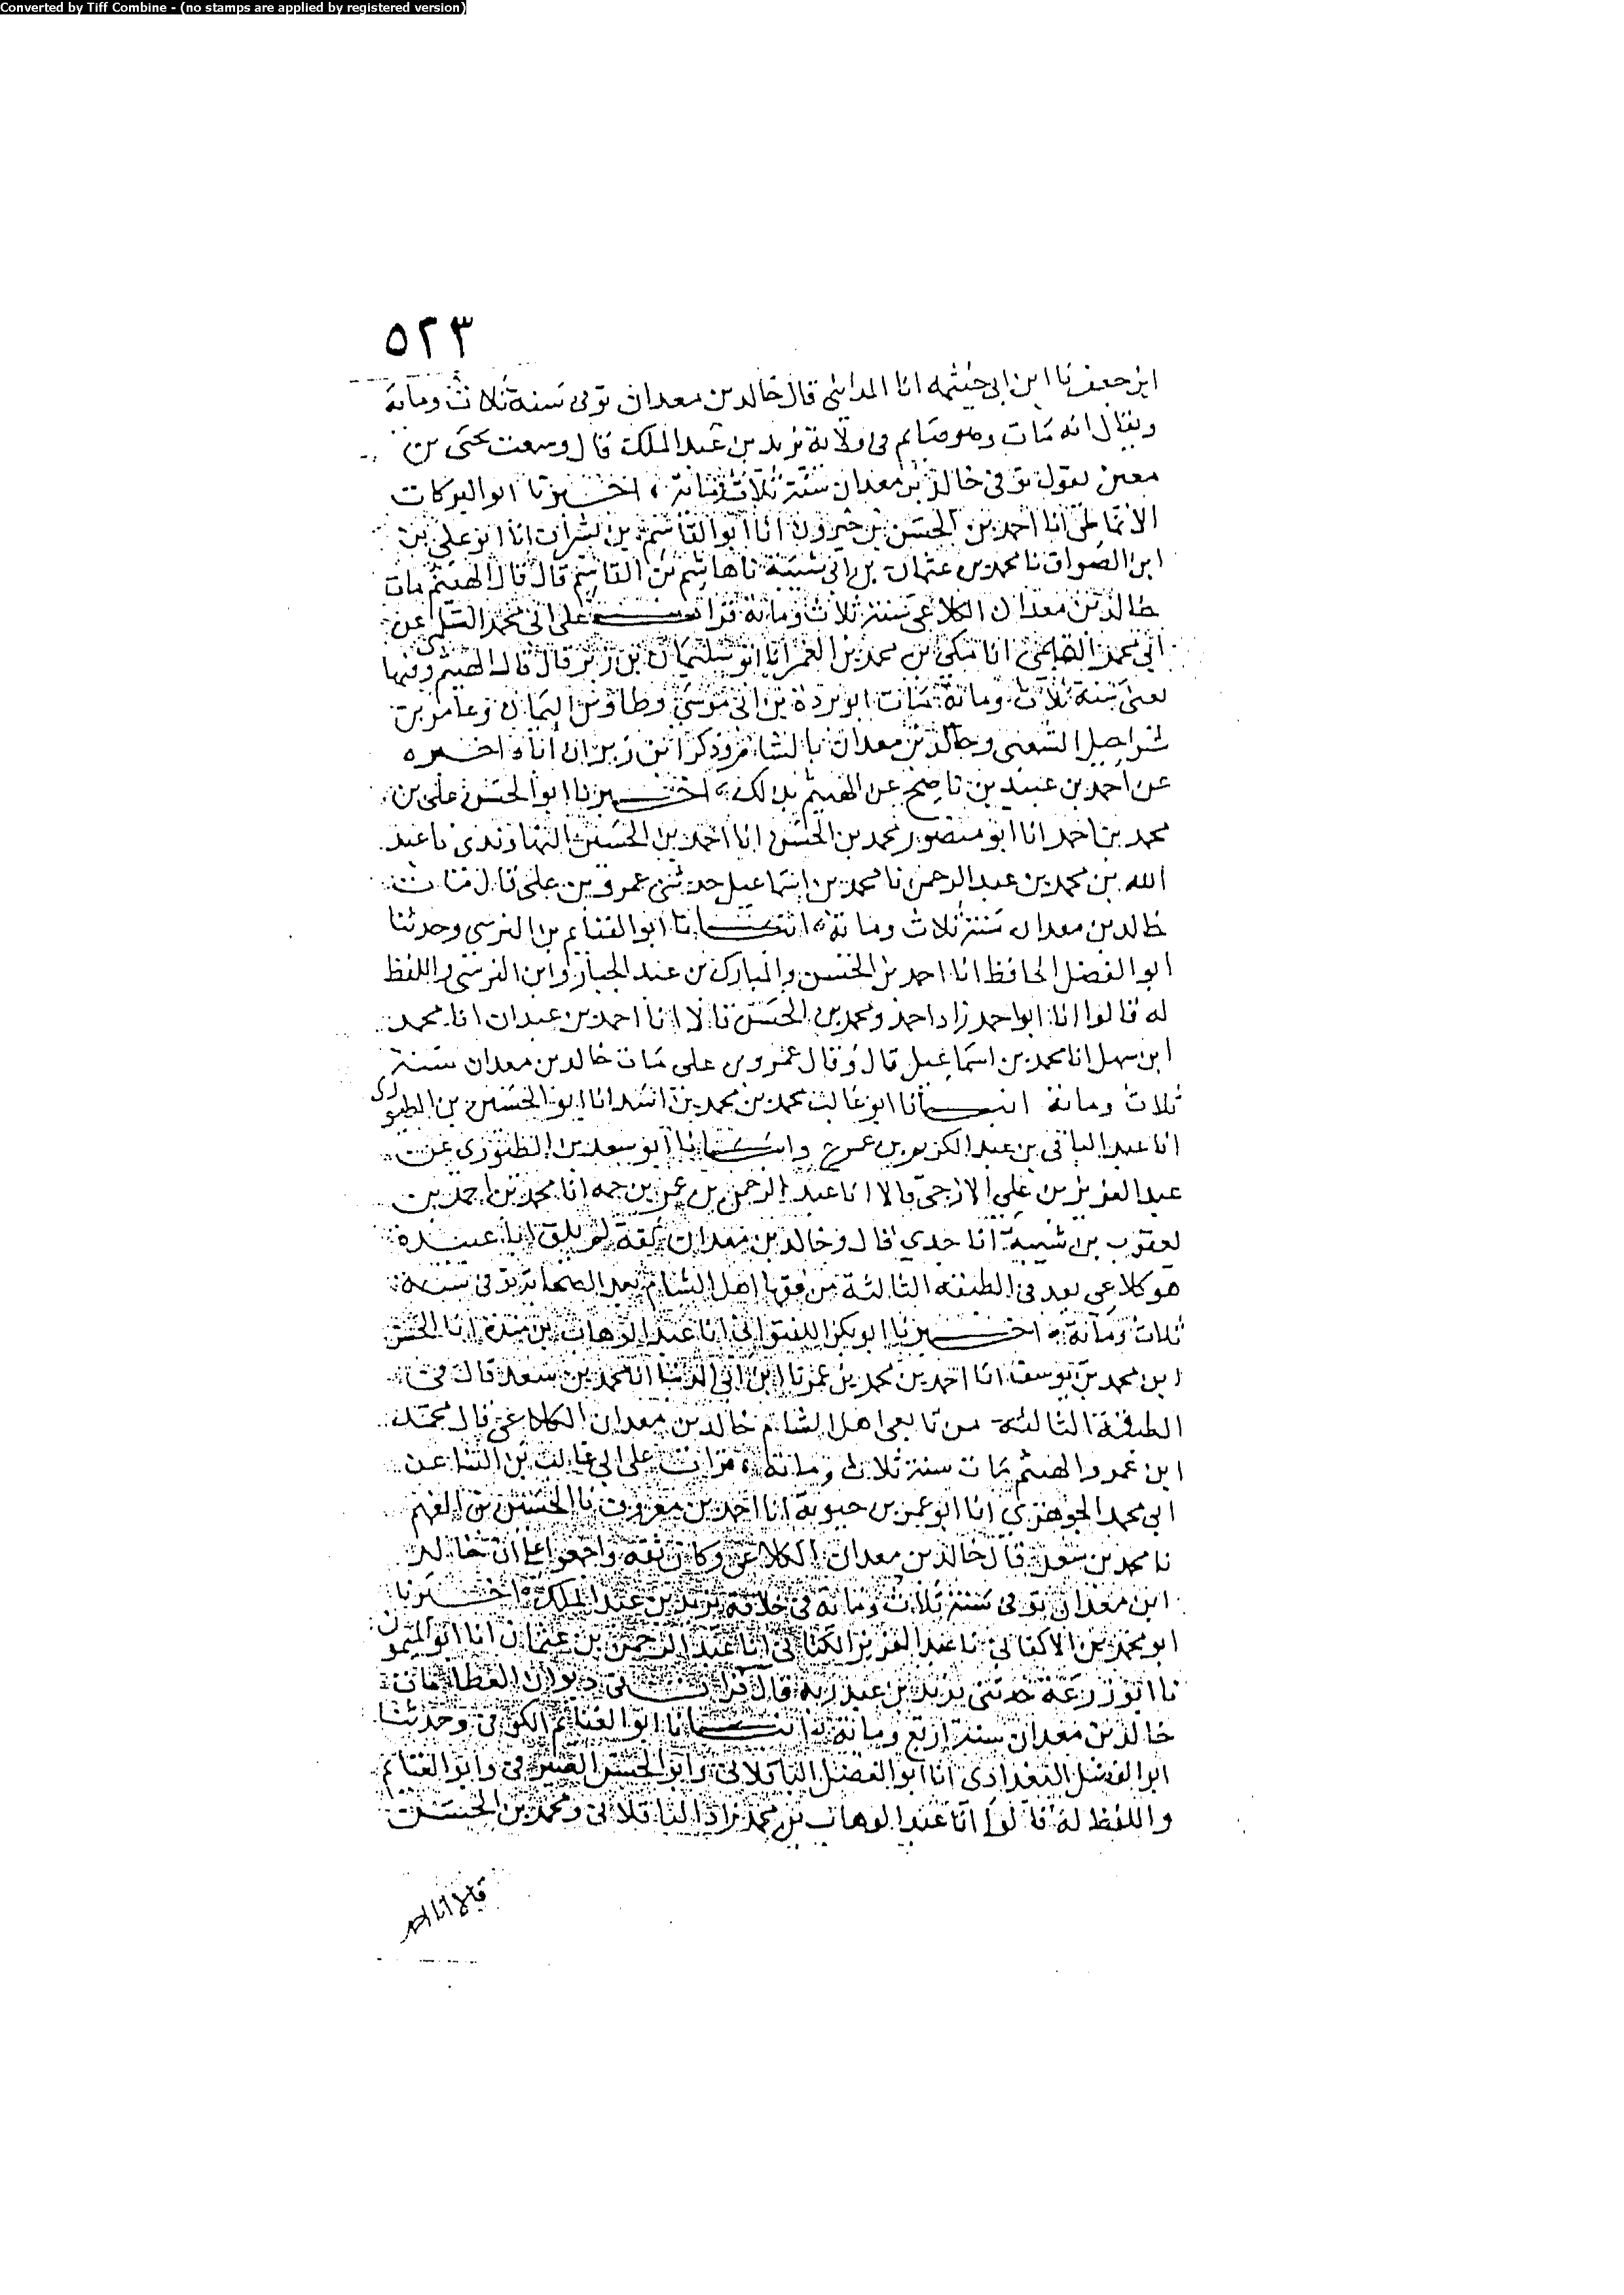 Converted by Tiff Combine - (no stamps are applied by registered version)
٥٢٣
ابن جعفر نا ابن ابي خيثمه انا المدائني قال خالد بن معدان توفي سنة ثلاث ومائة
ويقال انه مات وهو صايم في ولاية يزيد بن عبد الملك قال وسمعت يحيى بن
معين يقول توفي خالد بن معدان سنة ثلاث ومائة ، اخبرنا ابو البركات
الانماطي انا احمد بن الحسن بن خيرون انا ابو القاسم بن بشران انا ابو علي بن
ابن الصواف نا محمد بن عثمان بن ابي شيبة نا هاشم بن القاسم قال قال الهيثم مات
خالد بن معدان الكلاعي سنة ثلاث ومائة قرات على ابي محمد السلمي عن
ابي محمد التميمي انا مكي بن محمد بن الغمر انا ابو سليمان بن زبر قال قال الهيثم وفيها
يعني سنة ثلاث ومائة مات ابو بردة بن ابي موسى وطاوس اليمان وعامر بن
شراحيل الشعبي وخالد بن معدان بالشام وذكر ابن زبر ان اباه اخبره
عن احمد بن عبيد بن ناصح عن الهيثم بذلك ، اخبرنا ابو الحسن علي بن
محمد بن احمد انا ابو منصور محمد بن الحسن انا احمد بن الحسين النهاوندي نا عبد
الله بن محمد بن عبد الرحمن نا محمد بن اسماعيل حدثني عمرو بن علي قال مات
خالد بن معدان سنة ثلاث ومائة ، انبانا ابو الغنايم بن النرسي وحدثنا
ابو الفضل الحافظ انا احمد بن الحسن والمبارك بن عبد الجبار وابن النرسي واللفظ
له قالوا انا ابو احمد زاد احمد ومحمد بن الحسن قالا انا احمد بن عبدان انا محمد
ابن سهل انا محمد بن اسماعيل قال وقال عمرو بن علي مات خالد بن معدان سنة
ثلاث ومائة انبانا ابو غالب محمد بن محمد بن اسد انا ابو الحسين بن الطيوري
انا عبد الباقي بن عبد الكريم بن عمر ح وانبانا ابو سعد بن الطيوري عن
عبد العزيز بن علي الازجي قالا انا عبد الرحمن بن عمر بن حمه انا محمد بن احمد بن
يعقوب بن شيبة انا جدي قال وخالد بن معدان ثقة لم يلق ابا عبيدة
هو كلاعي يعد في الطبقه الثالثة من فقها اهل الشام بعد الصحابة توفي سنة
ثلاث ومائة ، اخبرنا ابو بكر اللفتواني انا عبد الوهاب بن مندة انا الحسن
ابن محمد بن يوسف انا احمد بن محمد بن عمر نا ابن ابي الدنيا نا محمد بن سعد قال في
الطبقة الثالثة من تابعي اهل الشام خالد بن معدان الكلاعي قال محمد
ابن عمر والهيثم مات سنة ثلاث ومائة ، قرات على ابي غالب بن البنا عن
ابي محمد الجوهري انا ابو عمر بن حيوية انا احمد بن معروف نا الحسين بن الفهم
نا محمد بن سعد قال خالد بن معدان الكلاعي وكان ثقة واجمعوا على ان خالد
ابن معدان توفي سنة ثلاث ومائة في خلافة يزيد بن عبد الملك ، اخبرنا
ابو محمد بن الاكفاني نا عبد العزيز الكتاني انا عبد الرحمن بن عثمان انا ابو الميمون
نا ابو زرعة حدثني يزيد بن عبد ربه قال قرات في ديوان العطا مات
خالد بن معدان سنة اربع ومائة ، انبانا ابو الغنايم الكوفي وحدثنا
ابو الفضل البغدادي انا ابو الفضل الباقلاني وابو الحسين الصيرفي وابو الغنايم
واللفظ له قالوا انا عبد الوهاب بن محمد زاد الباقلاني ومحمد بن الحسن
قالا انا احمد